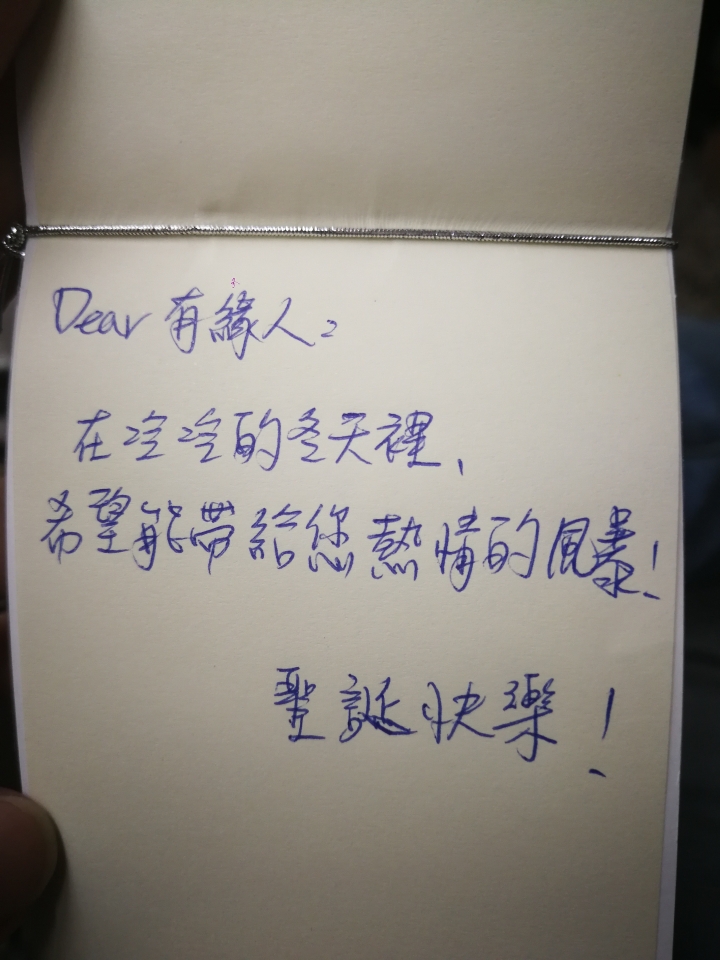 Dear 有緣人:
在冷冷的冬天裡,
希望能帶給您熱情的風暴!
聖誕快樂!